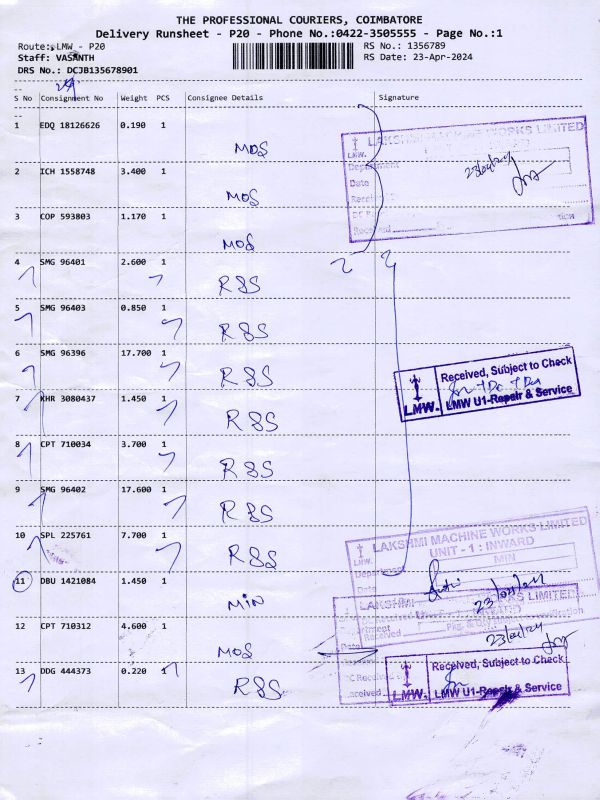 THE PROFESSIONAL COURIERS, COIMBATORE
Delivery Runsheet - P20 - Phone No.:0422-3505555 - Page No.:1
Route: LMW - P20
RS No.: 1356789
Staff: VASANTH
RS Date: 23-Apr-2024
DRS No.: DCJB135678901
S No Consignment No Weight PCS Consignee Details Signature
1 EDQ 18126626 0.190 1
MOS
2 ICH 1558748 3.400 1
MOS
3 COP 593803 1.170 1
MOS
4 SMG 96401 2.600 1
R&S
5 SMG 96403 0.850 1
R&S
6 SMG 96396 17.700 1
R&S
7 KHR 3080437 1.450 1
R&S
8 CPT 710034 3.700 1
R&S
9 SMG 96402 17.600 1
R&S
10 SPL 225761 7.700 1
R&S
11 DBU 1421084 1.450 1
MIN
12 CPT 710312 4.600 1
MOS
13 DDG 444373 0.220 1
R&S
LAKSHMI MACHINE WORKS LIMITED
LMW.
Department
Date
23/04/2024
Received
Received, Subject to Check
LMW.
LMW U1-Repair & Service
LAKSHMI MACHINE WORKS LIMITED
UNIT - 1 : INWARD
LMW.
MIN
Department
Date
23/04/2024
LAKSHMI MACHINE WORKS LIMITED
INWARD
Received
23/04/24
Received, Subject to Check
LMW.
LMW U1-Repair & Service